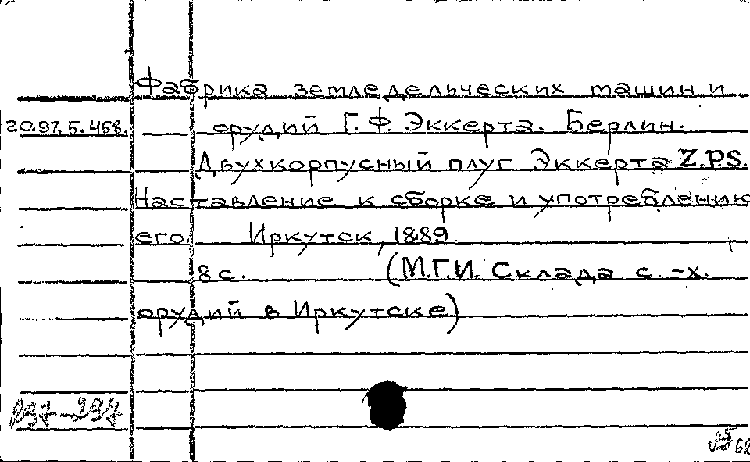 Фабрика земледельческих машин и
20.97.5.468. орудий Г.Ф Эккерта. Берлин.
Двухкорпусный плуг Эккерта Z.P.S.
Наставление к сборке и употреблению
его. Иркутск, 1889
8 с. (М.Г.И. Склада с.-х.
орудий в Иркутске)